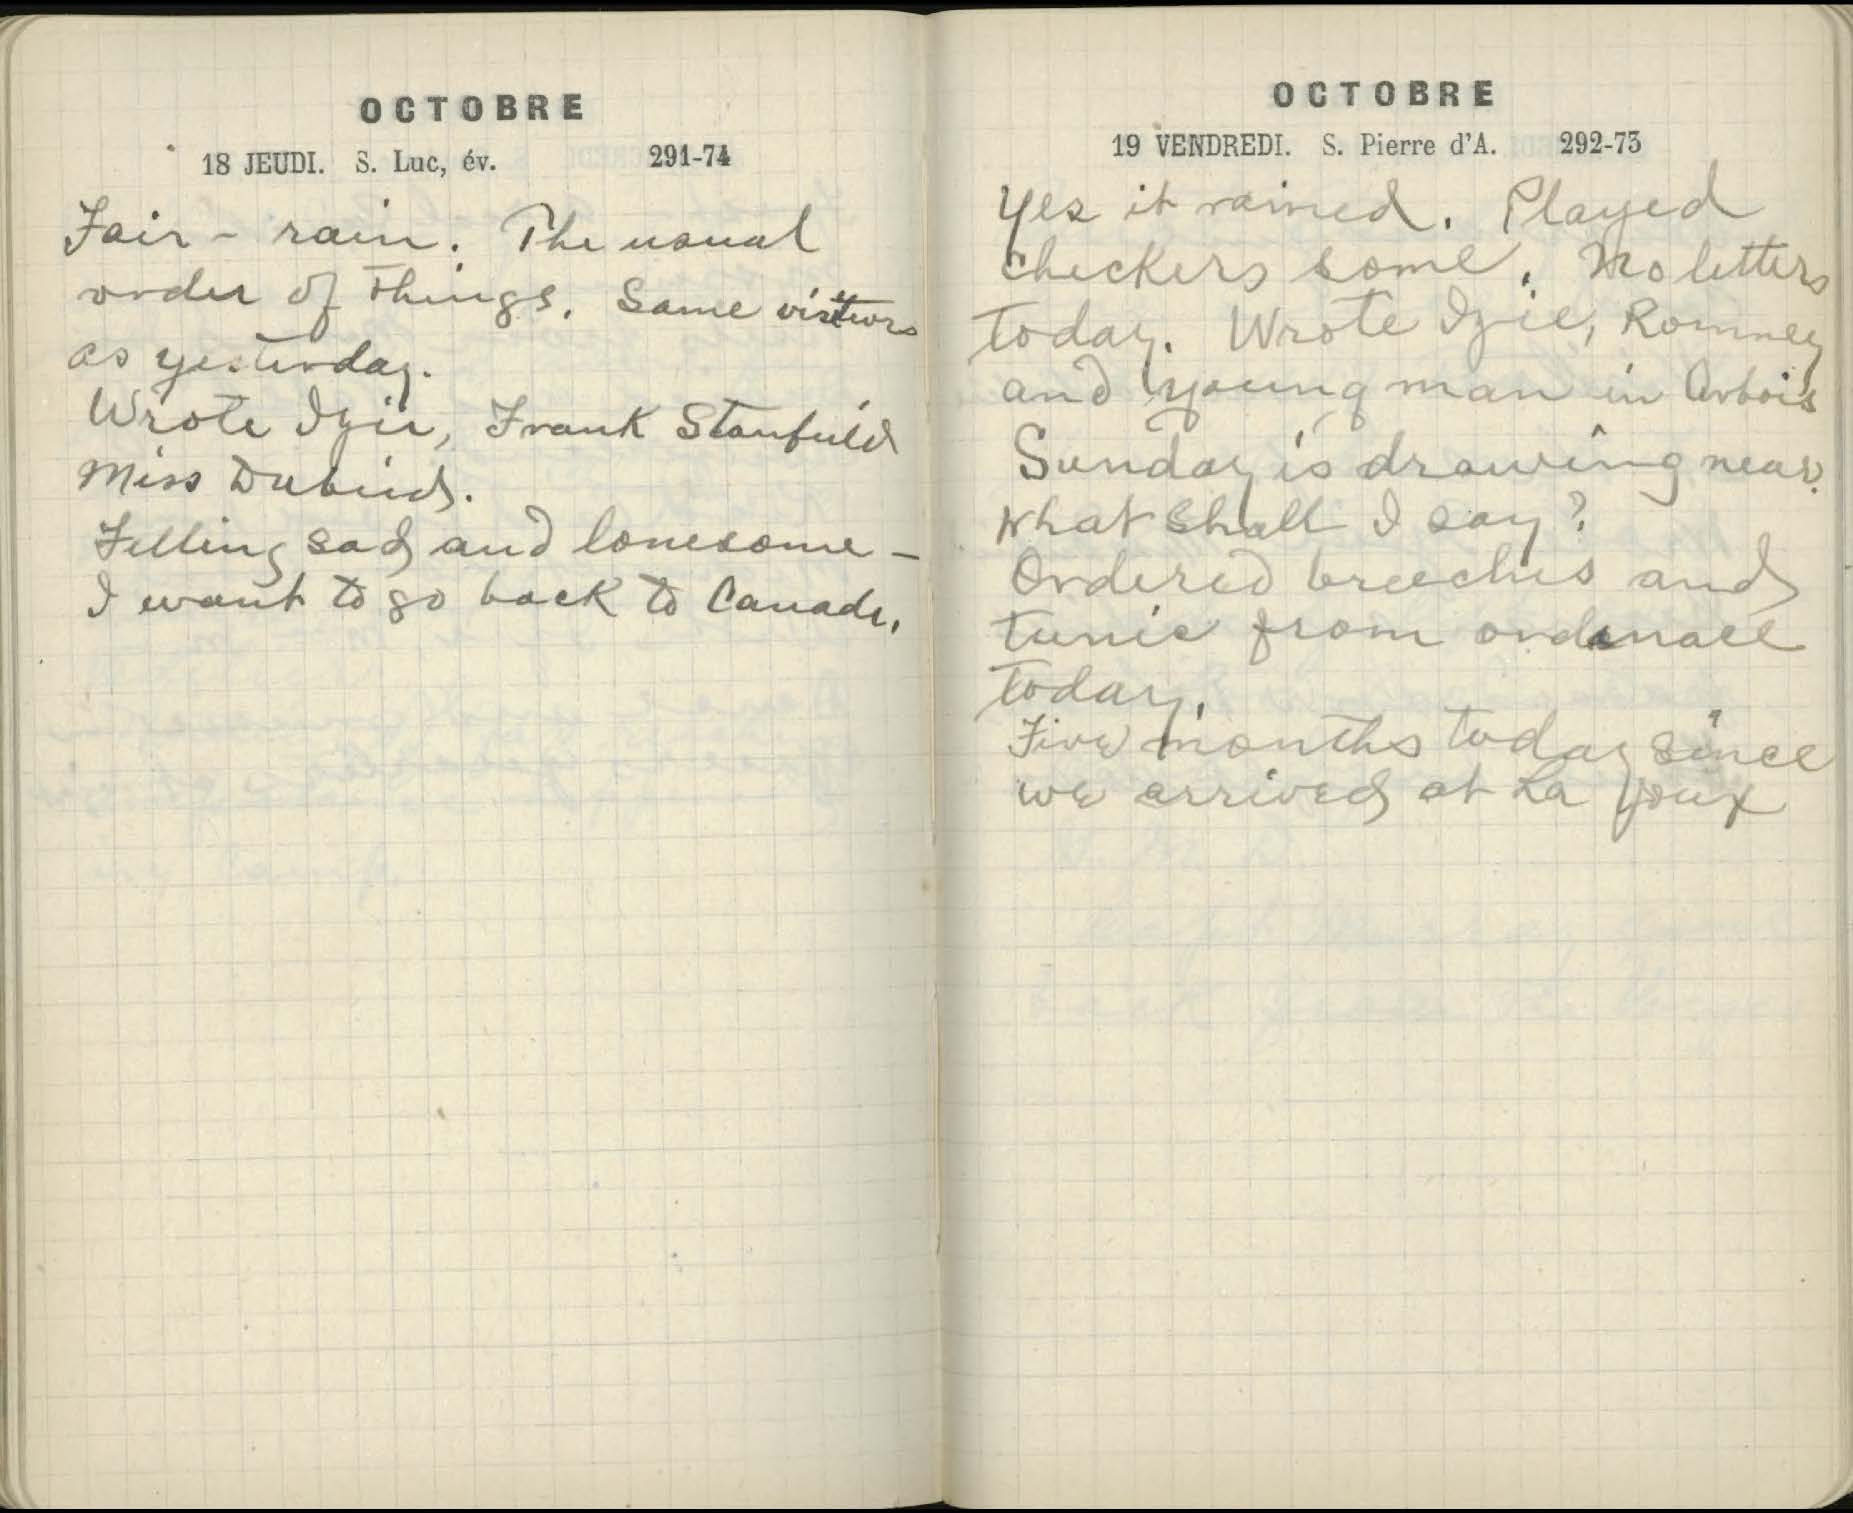 OCTOBRE
18 JEUDI. S. Luc, év. 291-74
Fair - rain. The usual
order of things. Same visitors
as yesterday.
Wrote Izie, Frank Stanfield
Miss
Felling sad and lonesome -
I want to go back to Canada.
OCTOBRE
19 VENDREDI. S. Pierre d'A. 292-73
Yes it rained. Played
checkers some. No letters
today. Wrote Izie, Romney
and young man in Arbois
Sunday is drawing near.
What shall I say?
Ordered breeches and
tunic from ordanace
today.
Five months today since
we arrived at La Joux